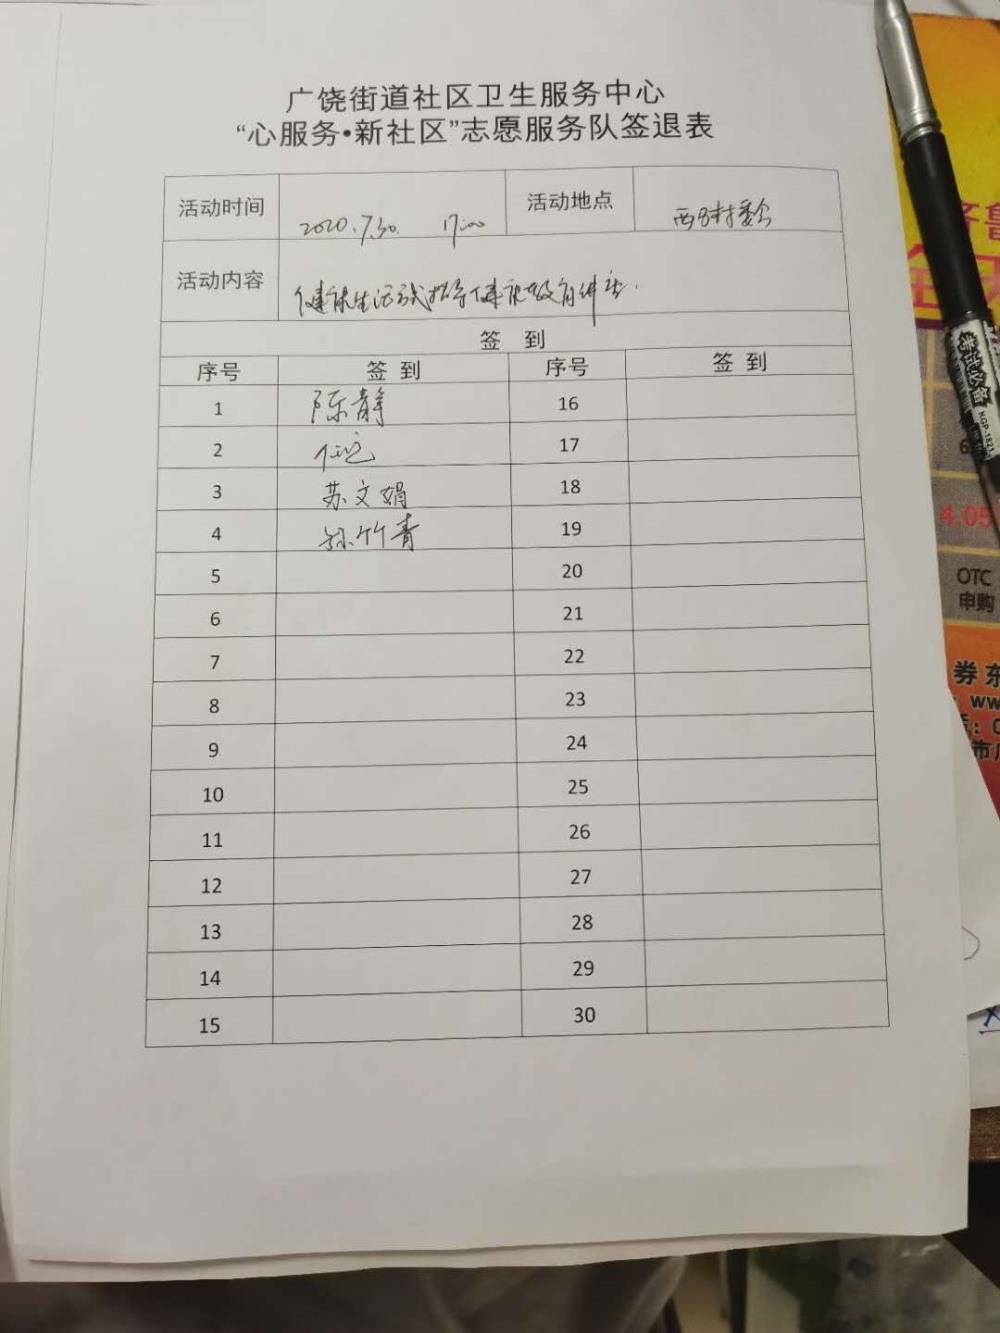 广饶街道社区卫生服务中心
“心服务•新社区”志愿服务队签退表
活动时间 2020.7.30. 17:00 活动地点 西村委会
活动内容 健康生活方式指导健康教育讲座.
签 到
序号 签 到 序号 签 到
1 陈静 16
2 17
3 苏文娟 18
4 孙竹青 19
5 20
6 21
7 22
8 23
9 24
10 25
11 26
12 27
13 28
14 29
15 30
考试必备
KGP-1821
齐鲁
4.05
OTC
申购
券东
ww
市